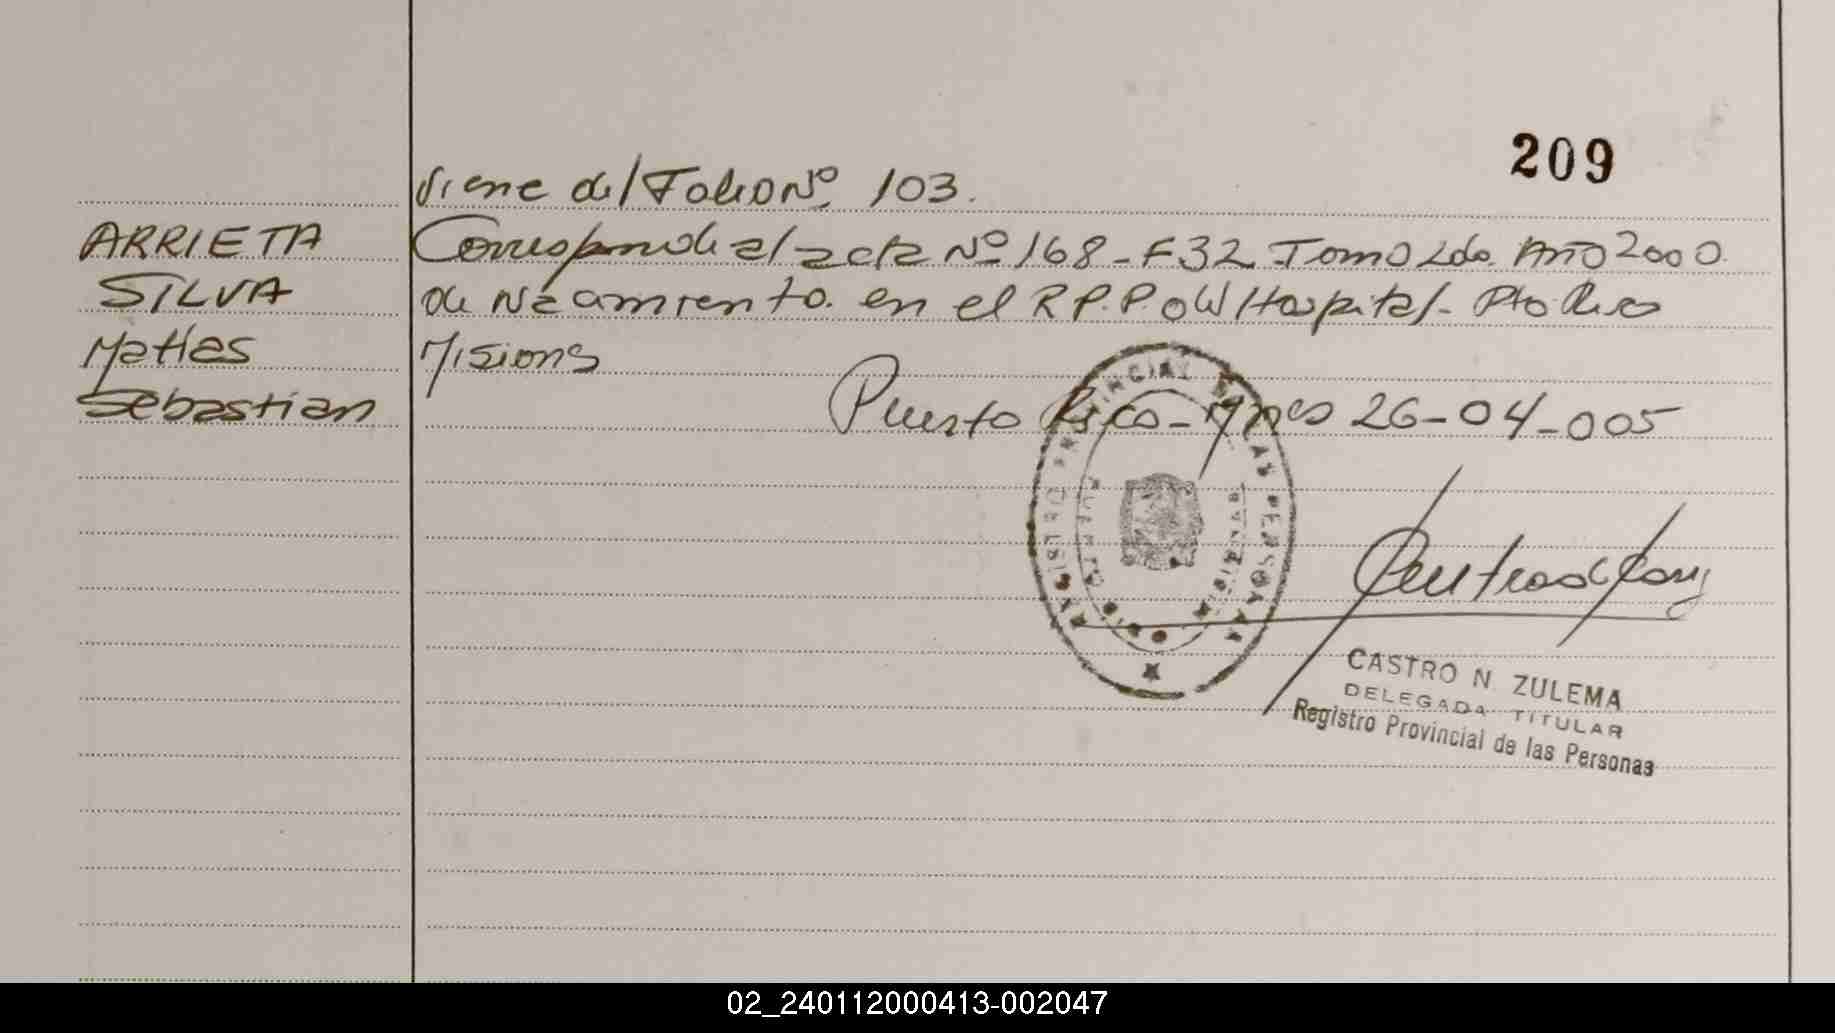 209
Viene del Folio Nº 103.
ARRIETA
Corresponde al acta Nº 168 - F32 Tomo 2do. Año 2000
SILVA
de Nacamiento. en el R.P.P. Hospital - Pto Rico
Matías
Misions
Sebastian
Puerto Rico - Mnes 26-04-005
REGISTRO PROVINCIAL DE LAS PERSONAS
CASTRO N. ZULEMA
DELEGADA TITULAR
Registro Provincial de las Personas
02_240112000413-002047